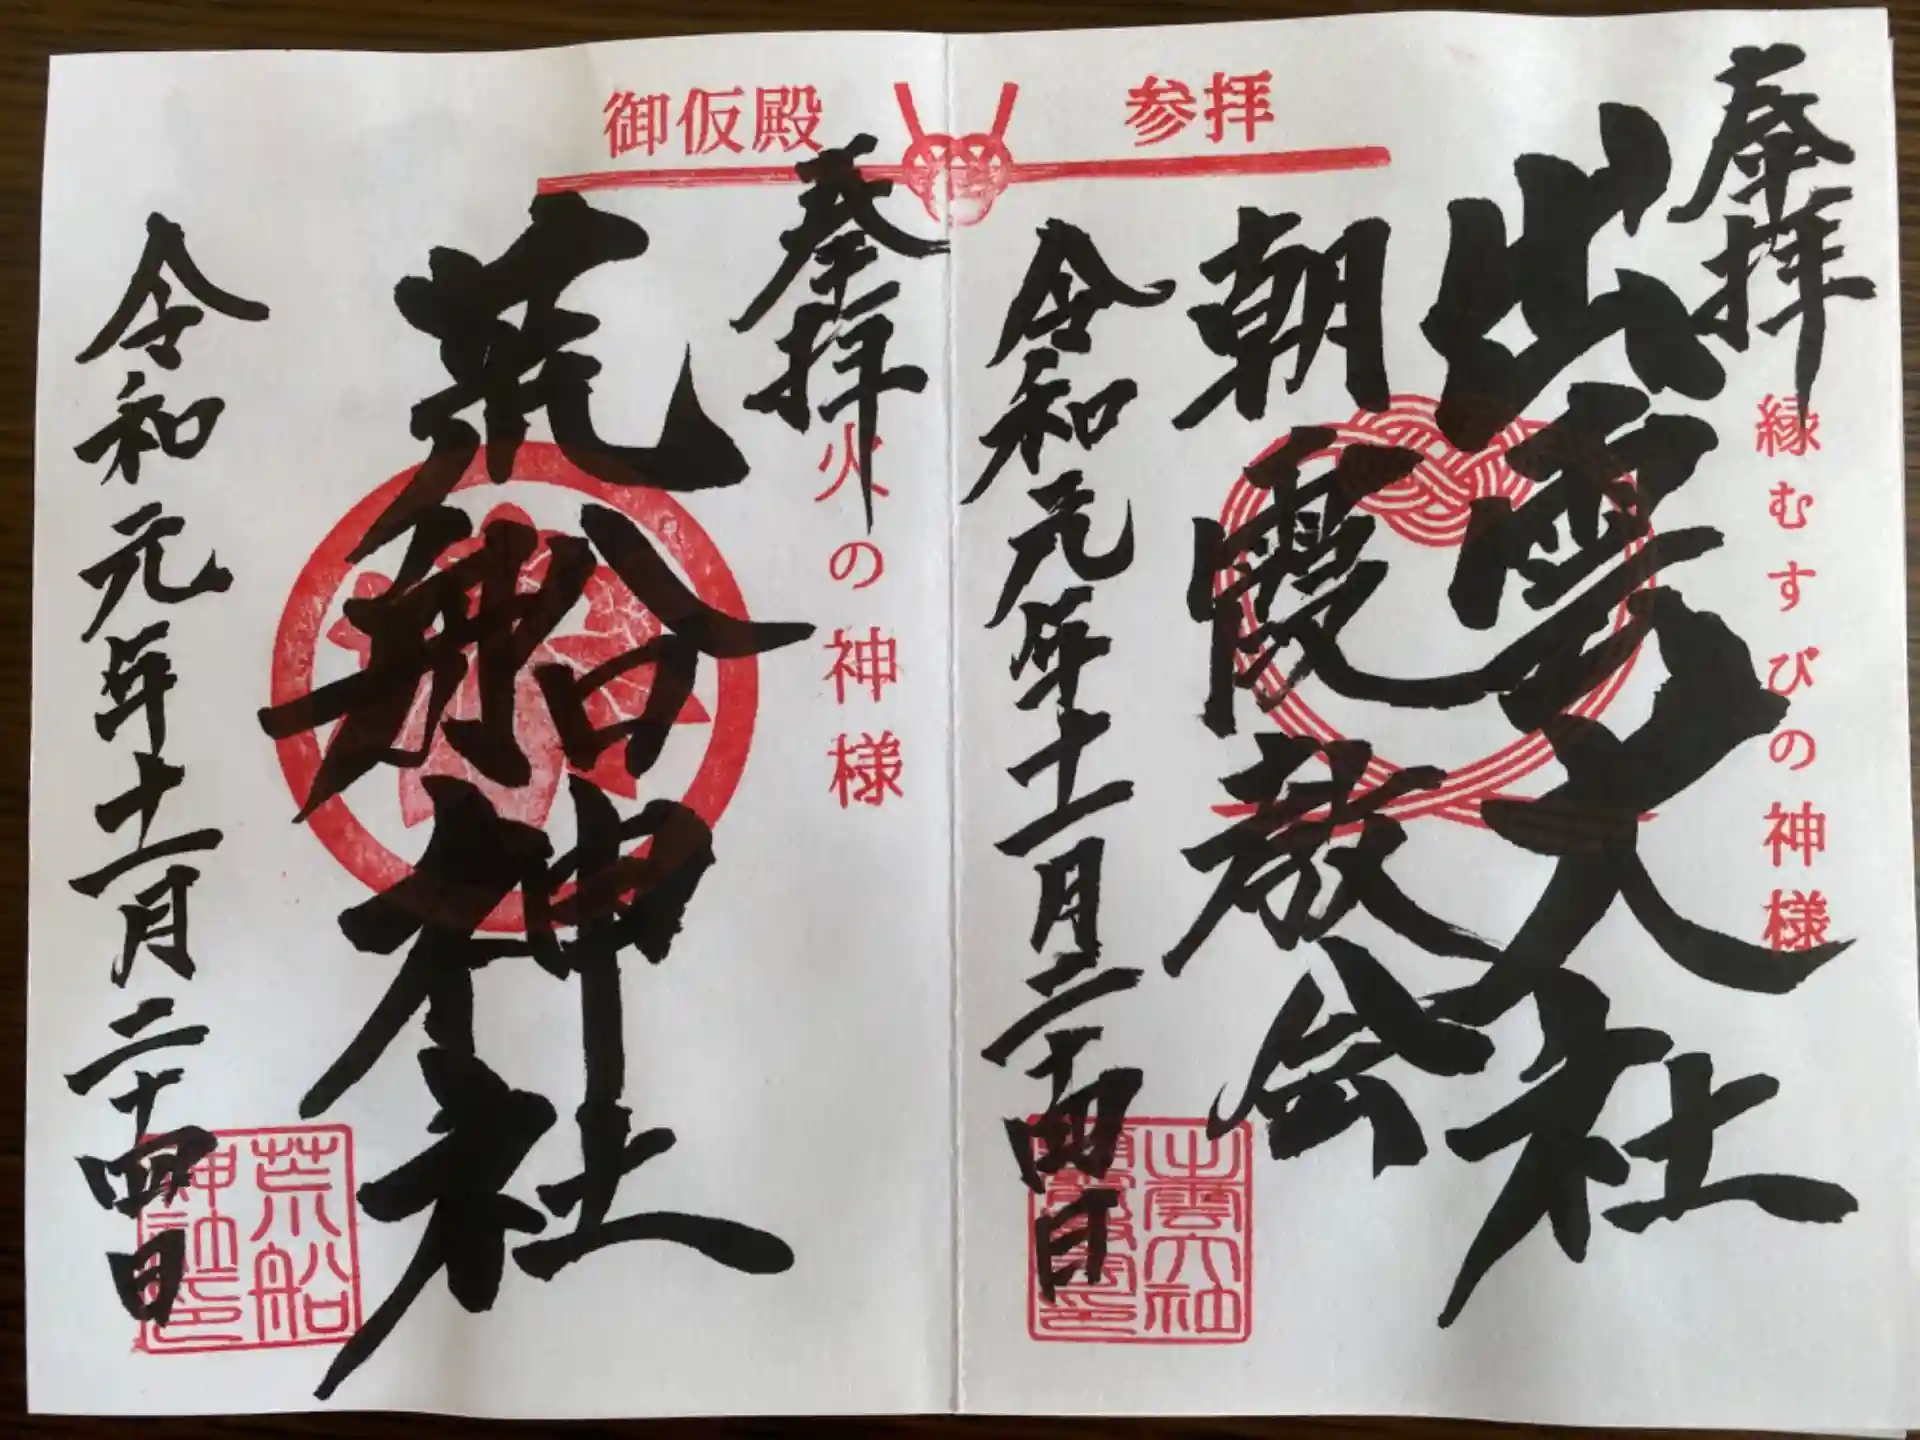 御仮殿 参拝
奉拝
縁むすびの神様
出雲大社
朝霞教会
令和元年十一月二十四日
出雲大社
奉拝
火の神様
荒船神社
令和元年十一月二十四日
荒船
神社印